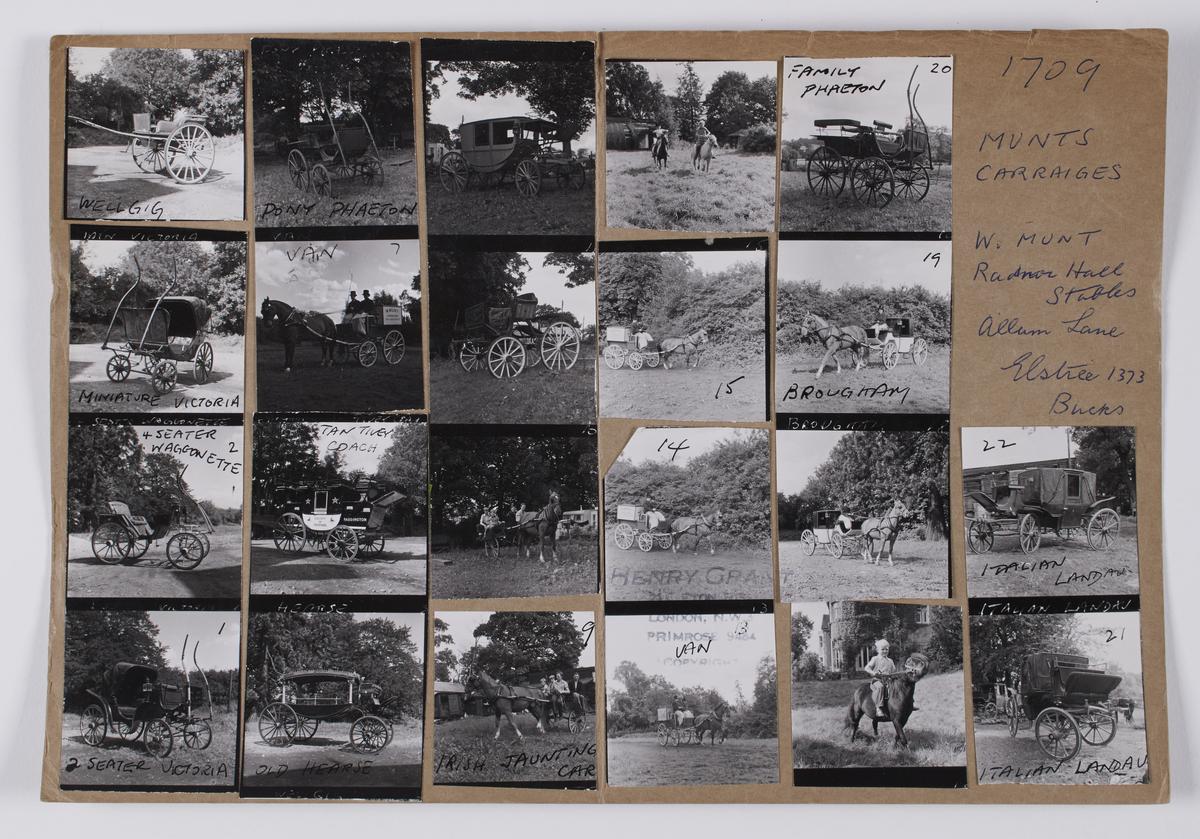 1709
MUNTS
CARRAIGES
W. MUNT
Radnor Hall
Stables
Allum Lane
Elstree 1373
Bucks
WELLGIG
PONY PHAETON
FAMILY 20
PHAETON
MINIATURE VICTORIA
VAIN 7
15
19
BROUGHAM
4 SEATER 2
WAGGONETTE
TANTIVEY
COACH
PADDINGTON
14
HENRY GRANT
LONDON, N.W.
PRIMROSE
COPYRIGHT
22
ITALIAN
LANDAU
1
2 SEATER VICTORIA
HEARSE
OLD HEARSE
9
IRISH JAUNTING
CAR
13
VAN
ITALIAN LANDAU
21
ITALIAN LANDAU